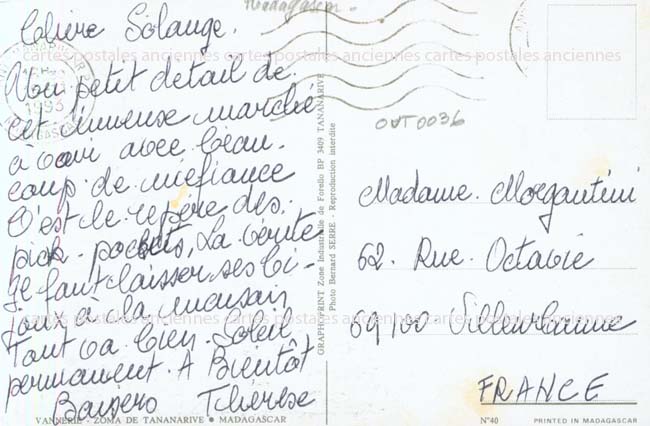 Madagascar
Chère Solange.
Un petit détail de
cet immense marché
à voir avec beau-
coup de méfiance
C'est le repère des
pick-pockets, La vérité
Je faut laisser ses bi-
joux à la maison
Tout va bien. Soleil
permanent. A Bientôt
Baisers Thérèse
VANNERIE - ZOMA DE TANANARIVE • MADAGASCAR
GRAPHOPRINT Zone Industrielle de Forello BP 3409 TANANARIVE
Photo Bernard SERRE - Reproduction interdite
1993
OUT0036
Madame. Morgantini
62. Rue. Octavie
69100 Villeurbanne
FRANCE
N°40
PRINTED IN MADAGASCAR
cartes postales anciennes cartes postales anciennes cartes postales anciennes
cartes postales anciennes cartes postales anciennes cartes postales anciennes